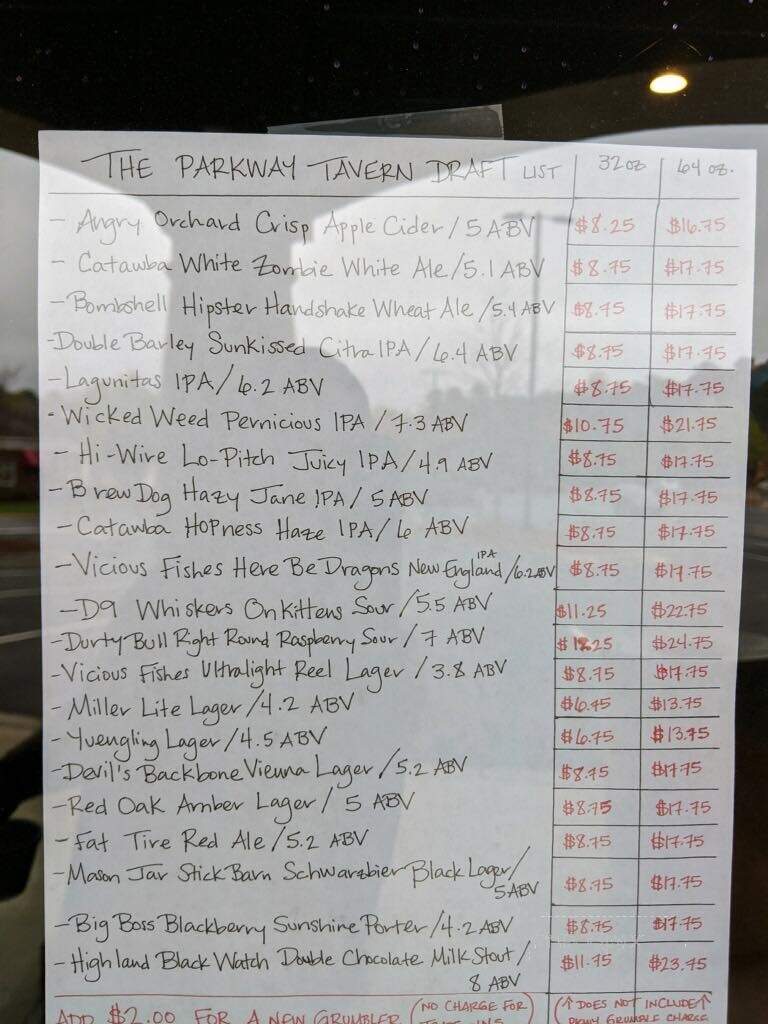 THE PARKWAY TAVERN DRAFT LIST 32oz 64 oz.
- Angry Orchard Crisp Apple Cider / 5 ABV $8.25 $16.75
- Catawba White Zombie White Ale / 5.1 ABV $8.75 $17.75
- Bombshell Hipster Handshake Wheat Ale / 5.4 ABV $8.75 $17.75
- Double Barley Sunkissed Citra IPA / 6.4 ABV $8.75 $17.75
- Lagunitas IPA / 6.2 ABV $8.75 $17.75
- Wicked Weed Pernicious IPA / 7.3 ABV $10.75 $21.75
- Hi-Wire Lo-Pitch Juicy IPA / 4.9 ABV $8.75 $17.75
- BrewDog Hazy Jane IPA / 5 ABV $8.75 $17.75
- Catawba Hopness Haze IPA / 6 ABV $8.75 $17.75
- Vicious Fishes Here Be Dragons New England IPA / 6.2 ABV $8.75 $17.75
- D9 Whiskers On Kittens Sour / 5.5 ABV $11.25 $22.75
- Durty Bull Right Round Raspberry Sour / 7 ABV $24.75
- Vicious Fishes Ultralight Reel Lager / 3.8 ABV $8.75 $17.75
- Miller Lite Lager / 4.2 ABV $6.75 $13.75
- Yuengling Lager / 4.5 ABV $6.75 $13.75
- Devil's Backbone Vienna Lager / 5.2 ABV $8.75 $17.75
- Red Oak Amber Lager / 5 ABV $8.75 $17.75
- Fat Tire Red Ale / 5.2 ABV $8.75 $17.75
- Mason Jar Stick Barn Schwarzbier Black Lager /
5 ABV $8.75 $17.75
- Big Boss Blackberry Sunshine Porter / 4.2 ABV $8.75 $17.75
- Highland Black Watch Double Chocolate Milk Stout /
8 ABV $11.75 $23.75
ADD $2.00 FOR A NEW GRUMBLER (NO CHARGE FOR (↑ DOES NOT INCLUDE ↑